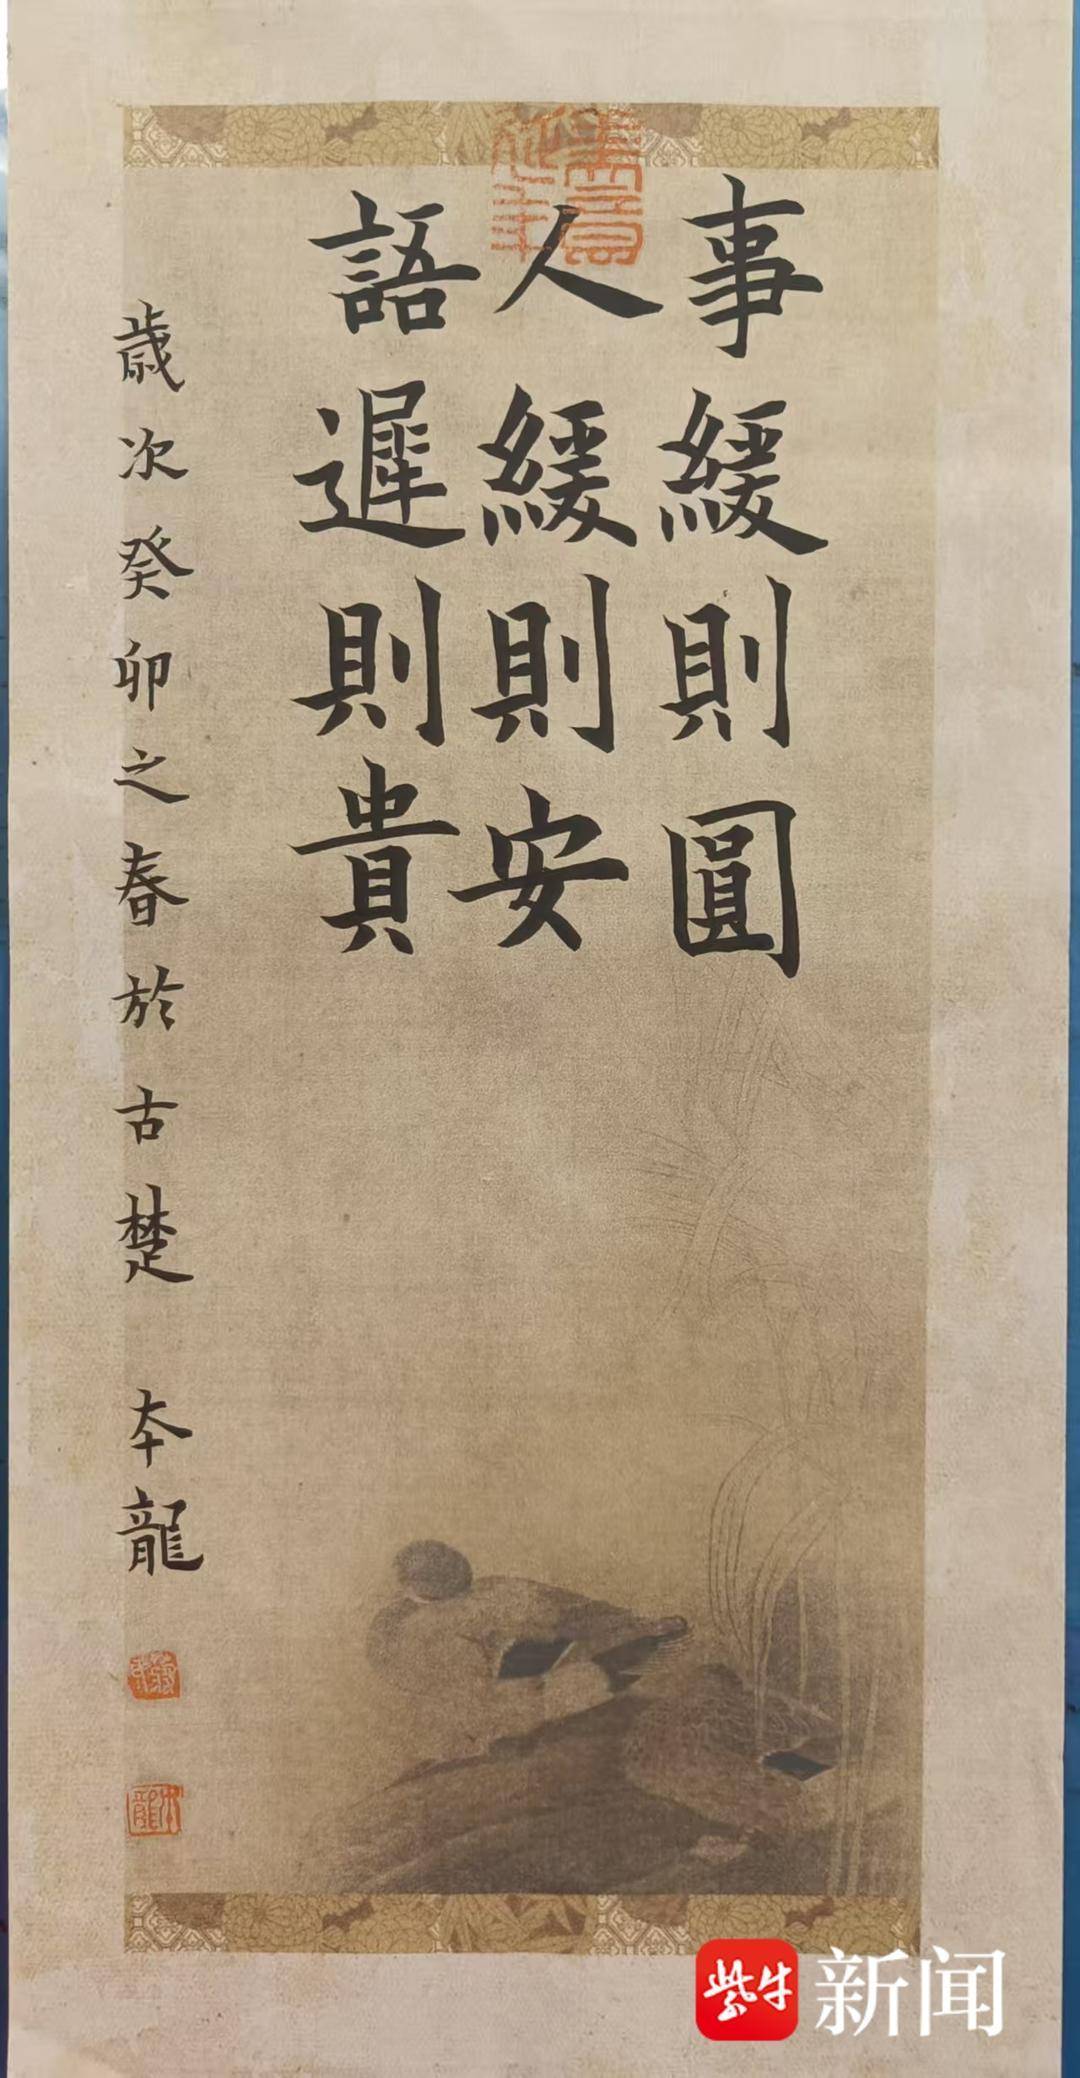 事緩則圓
人緩則安
語遲則貴
歲次癸卯之春於古楚 本龍
本龍
紫牛 新闻